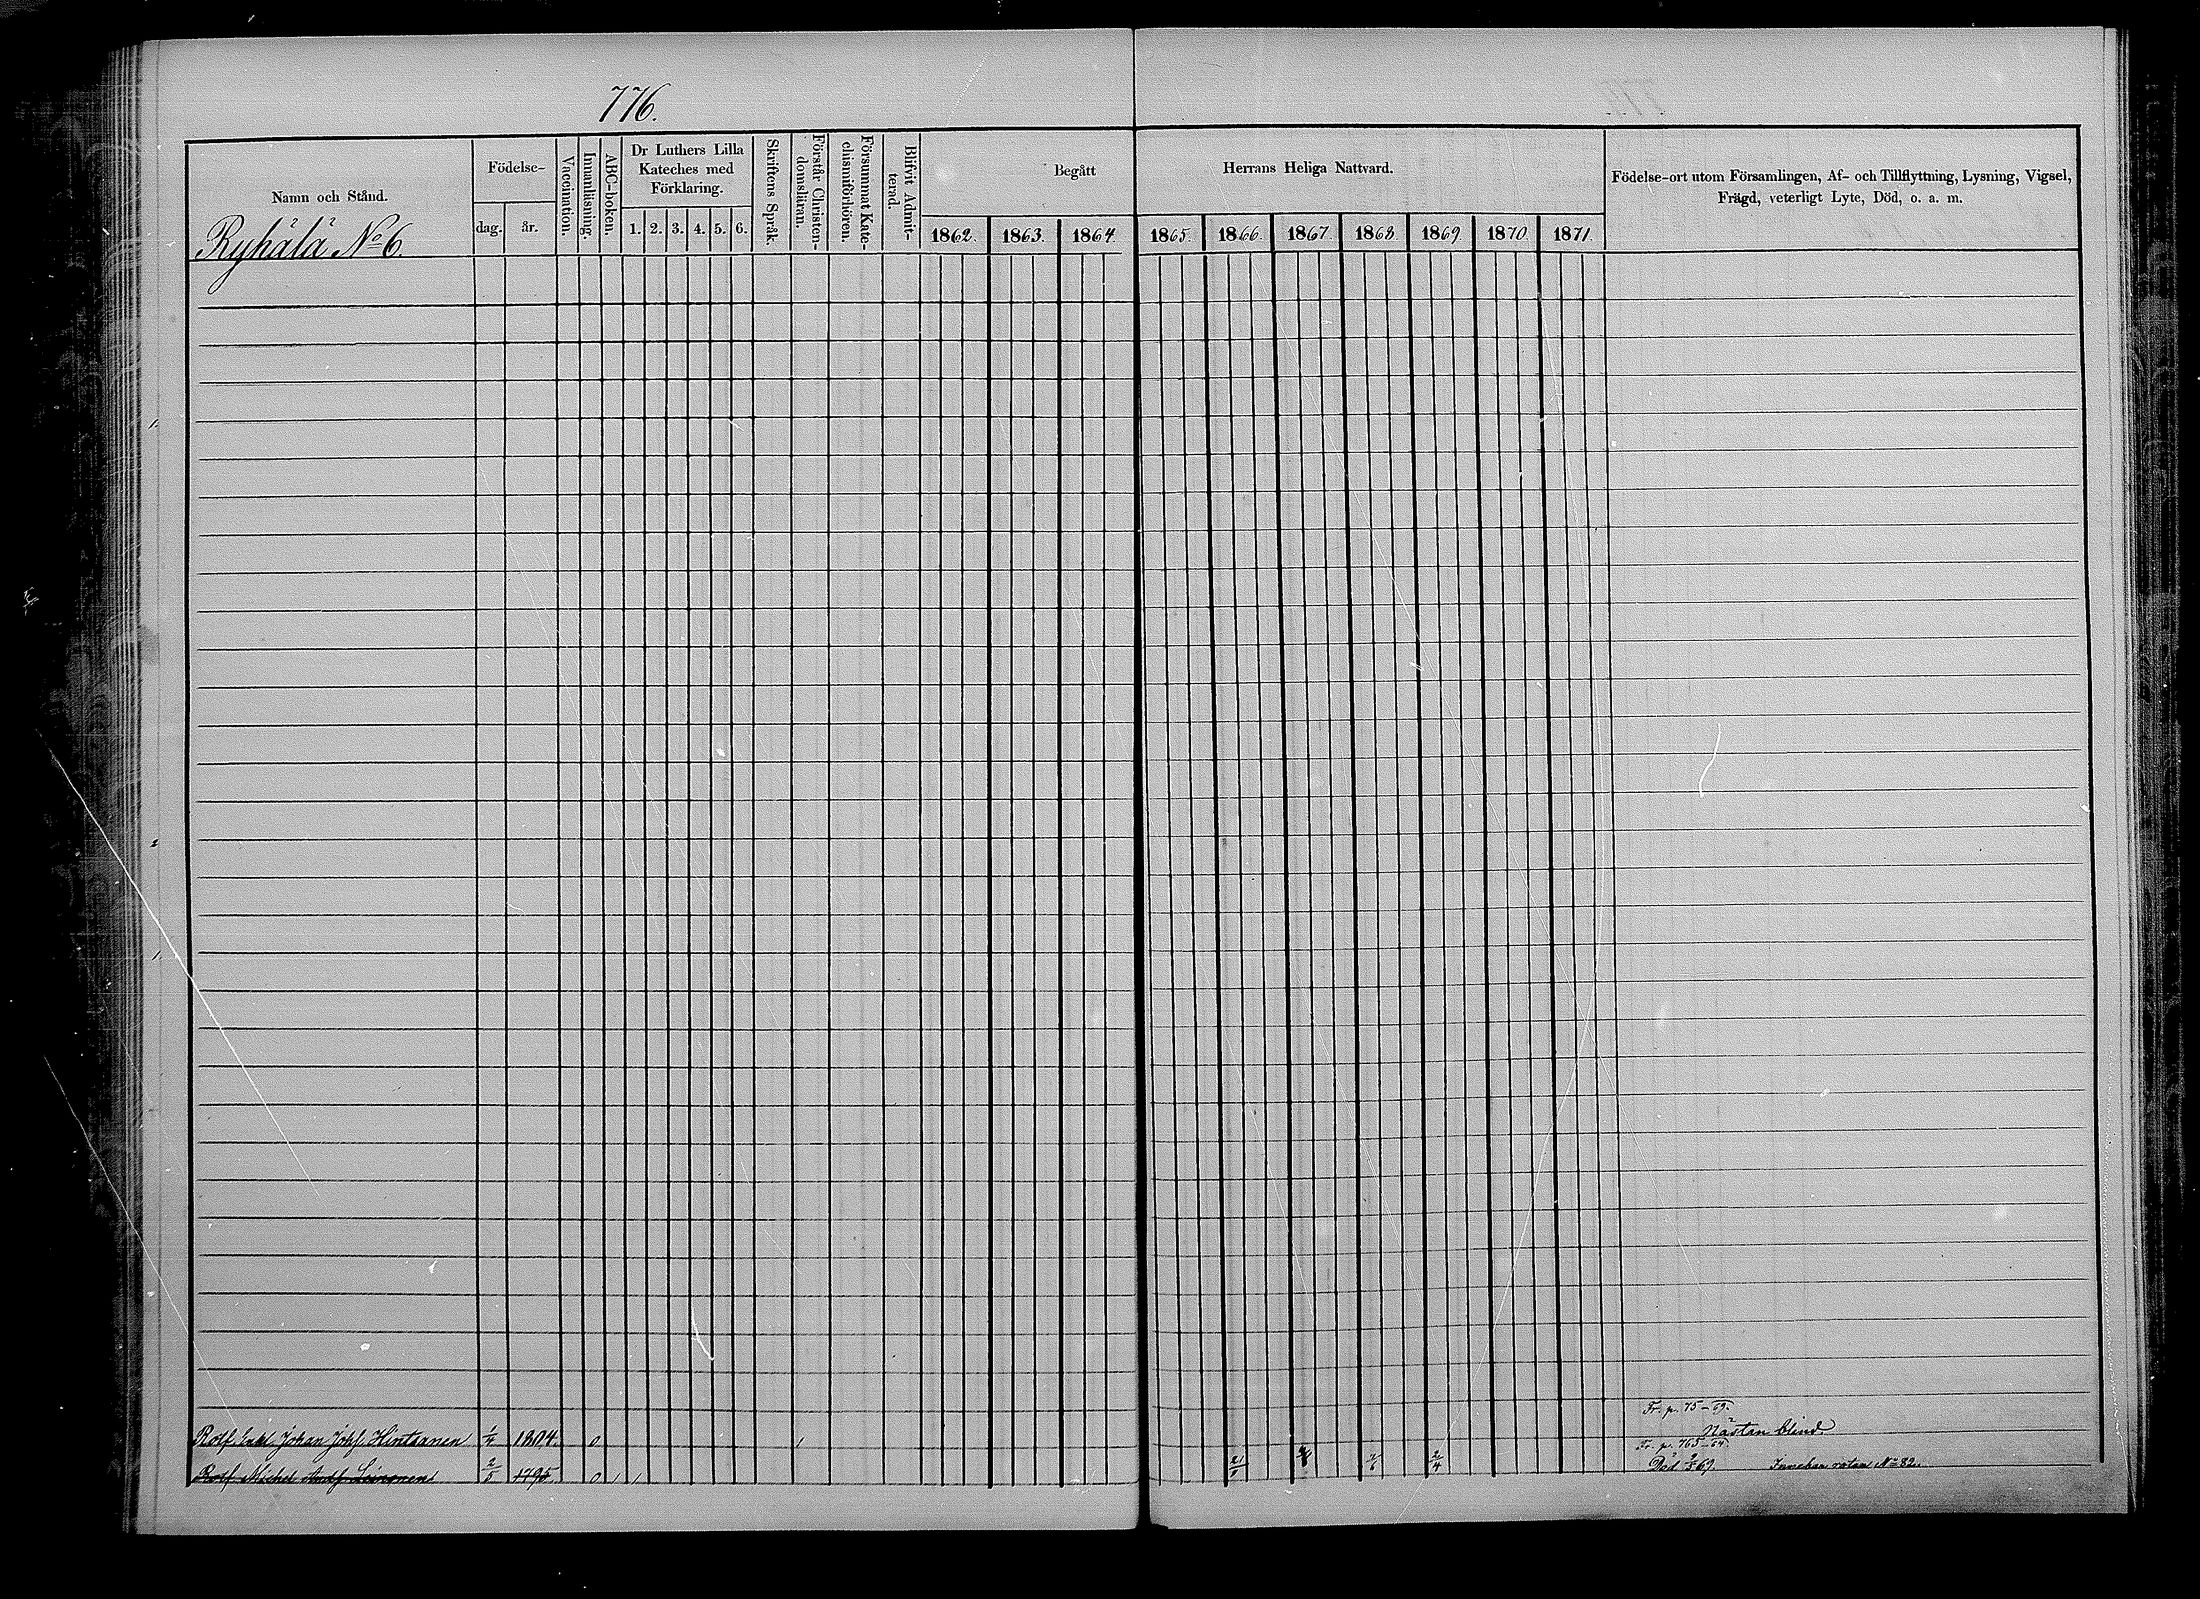 776.
Namn och Stånd.
Ryhälä No 6.
Födelse-
dag.
år.
Vaccination.
Innanläsning.
ABC-boken.
Dr Luthers Lilla
Kateches med
Förklaring.
1. 2. 3. 4. 5. 6.
Skriftens Språk.
Förstår Christen-
domsläran.
Försummat Kate-
chismiförhören.
Blifvit Admit-
terad.
Begått Herrans Heliga Nattvard.
1862. 1863. 1864. 1865. 1866. 1867. 1868. 1869. 1870. 1871.
Födelse-ort utom Församlingen, Af- och Tillflyttning, Lysning, Vigsel,
Frägd, veterligt Lyte, Död, o. a. m.
Fr. p. 75-69.
Rotf. Enkl. Johan Johs. Hintsanen 1/4 1804. 0 1 Nästan blind
Fr. p. 765-64.
Rotf. Michel Andf. Leinonen 2/5 1795. 0 1 1 2/4 Död 2/5 69. Innehar rotan No 82.